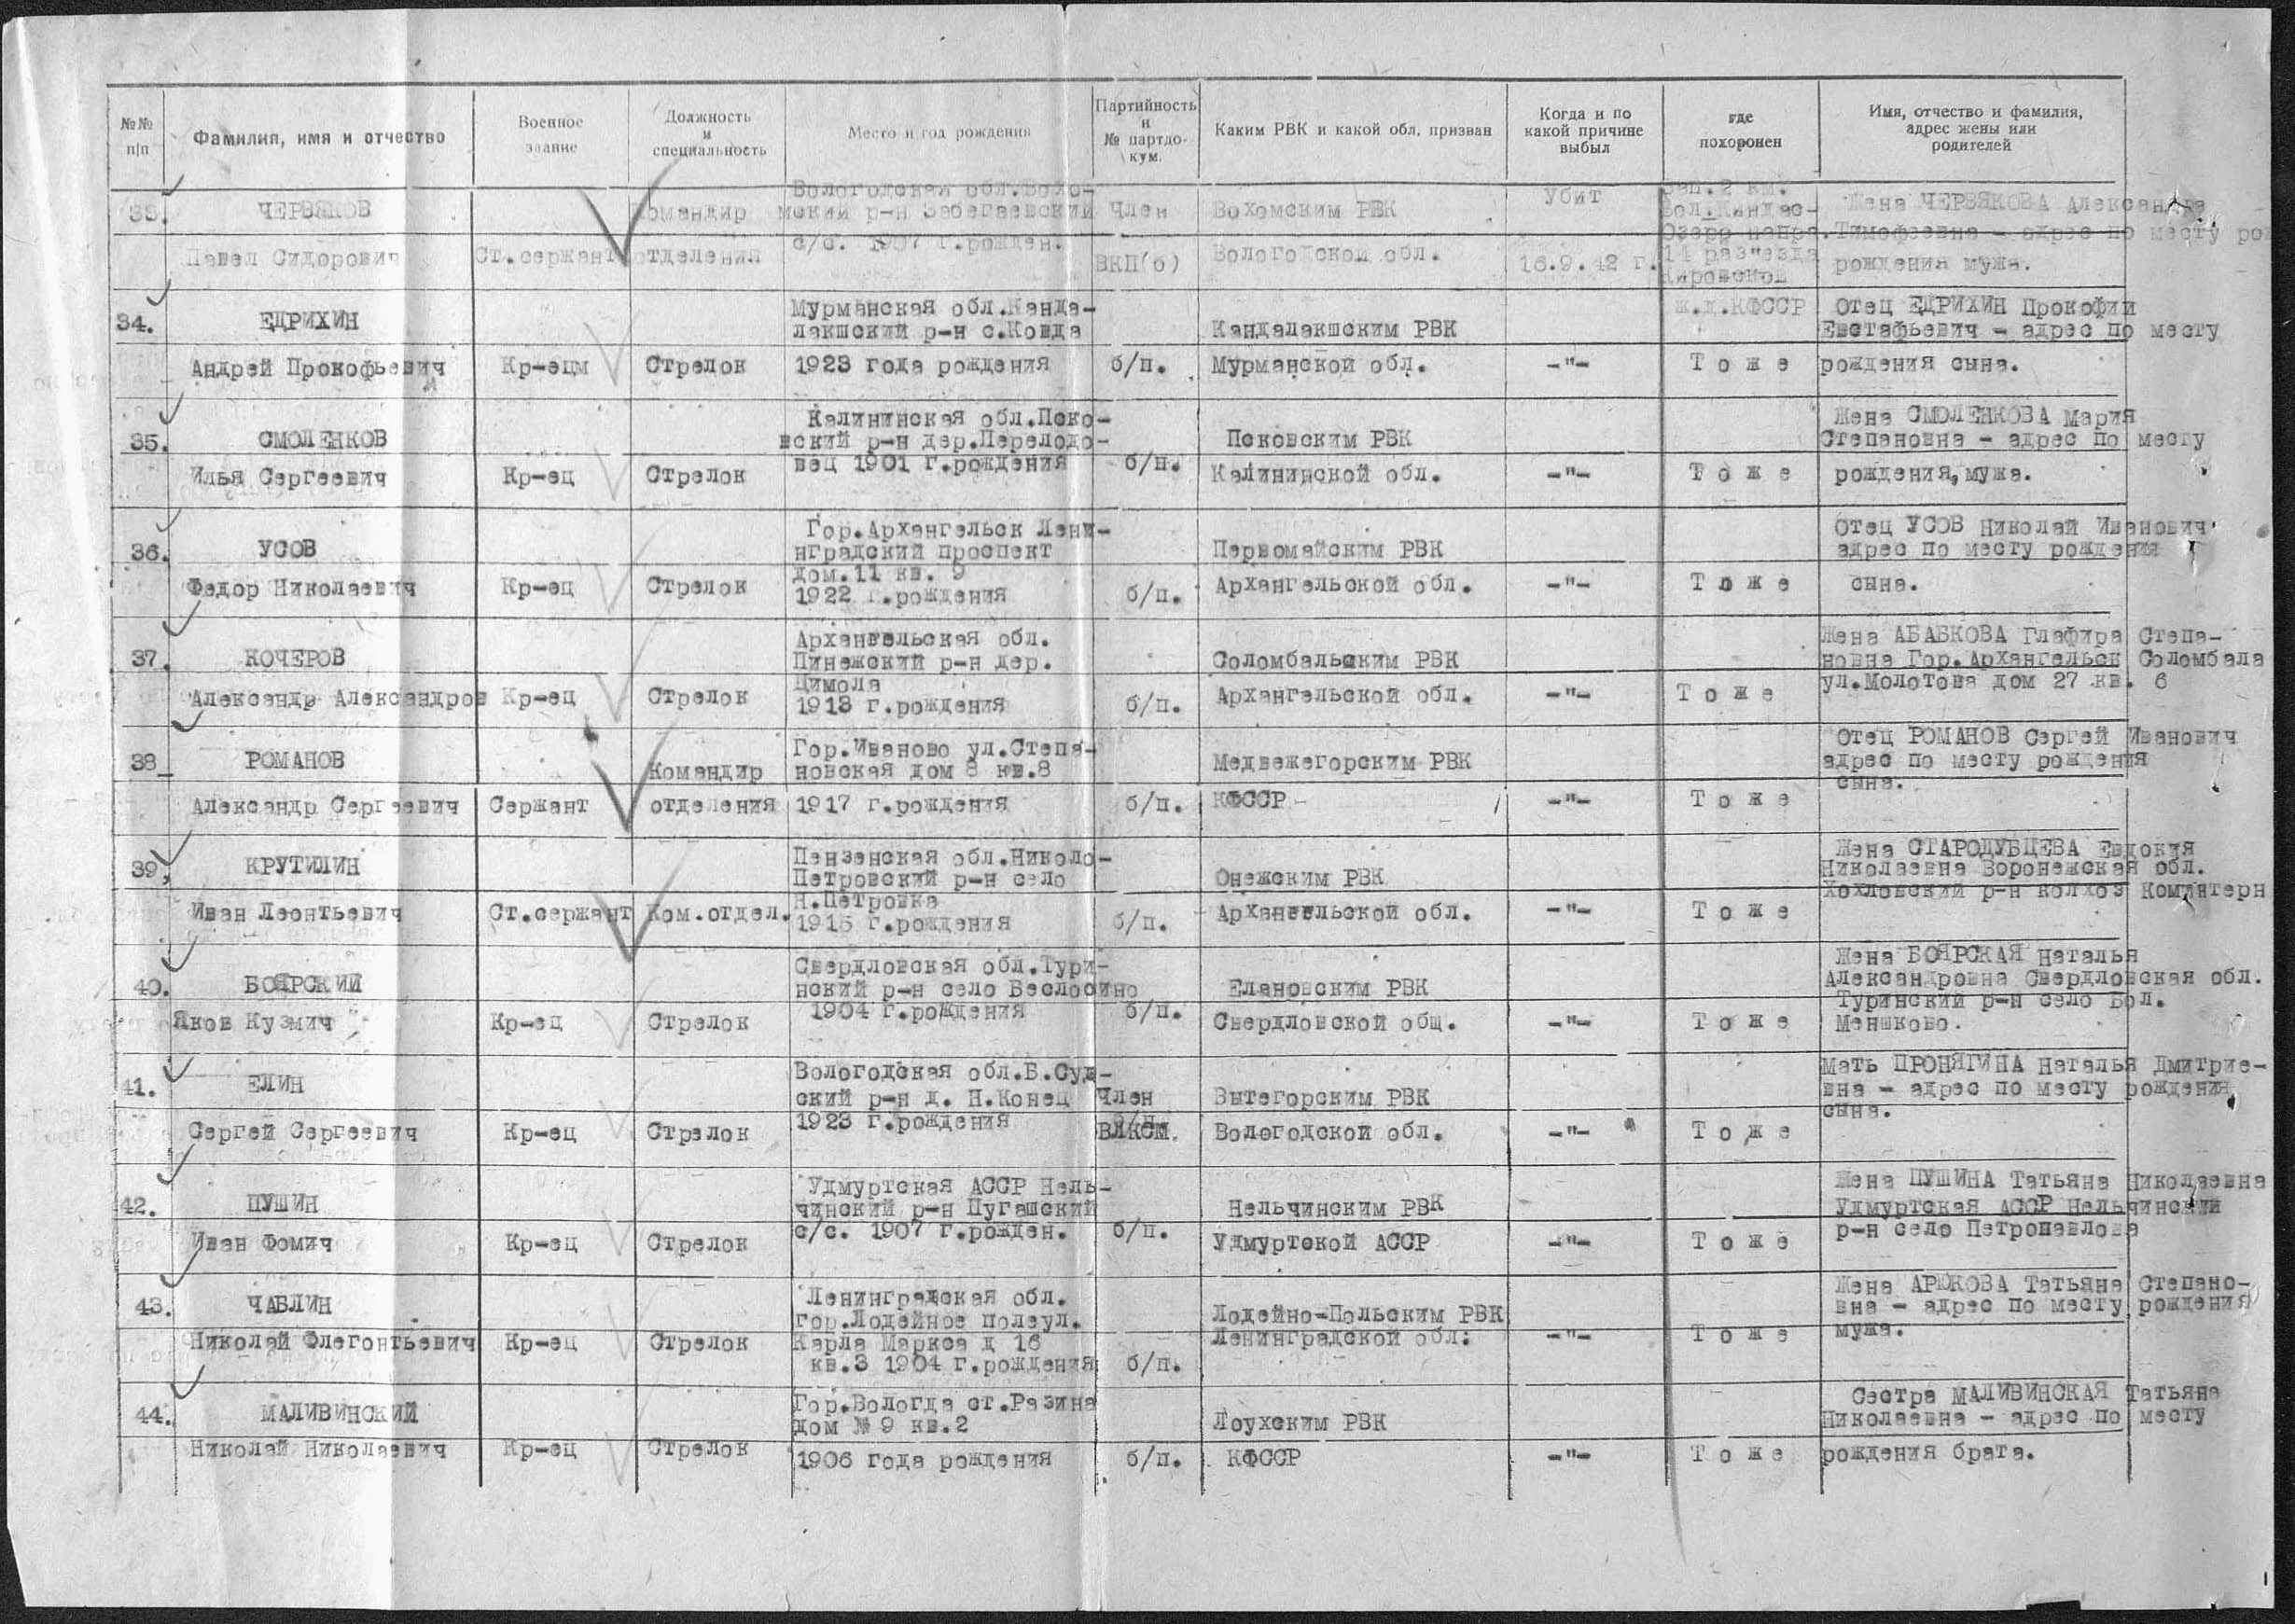 №№ п/п
Фамилия, имя и отчество
Военное звание
Должность и специальность
Место и год рождения
Партийность и № партдокум.
Каким РВК и какой обл. призван
Когда и по какой причине выбыл
где похоронен
Имя, отчество и фамилия, адрес жены или родителей
33. ЧЕРВЯКОВ
Павел Сидорович
Ст.сержант
Командир
отделения
Вологодская обл.Вохо-
мский р-н Забегаевский
с/с. 1907 г.рожден.
Член
ВКП(б)
Вохомским РВК
Вологодской обл.
Убит
16.9.42 г.
Зап.2 км.
Бол.Киндас-
Озеро напра.
14 раз"езда
Кировской
ж.д.КФССР
Жена ЧЕРВЯКОВА Александра
Тимофеевна - адрес по месту рож
рождения мужа.
34. ЕДРИХИН
Андрей Прокофьевич
Кр-ецм
Стрелок
Мурманская обл.Канда-
лакшский р-н с.Ковда
1923 года рождения
б/п.
Кандалакшским РВК
Мурманской обл.
-"-
Тоже
Отец ЕДРИХИН Прокофий
Евстафьевич - адрес по месту
рождения сына.
35. СМОЛЕНКОВ
Илья Сергеевич
Кр-ец
Стрелок
Калининская обл.Пско-
вский р-н дер.Перелодо-
вец 1901 г.рождения
б/п.
Псковским РВК
Калининской обл.
-"-
Тоже
Жена СМОЛЕНКОВА Мария
Степановна - адрес по месту
рождения, мужа.
36. УСОВ
Федор Николаевич
Кр-ец
Стрелок
Гор.Архангельск Лени-
нградский проспект
дом.11 кв. 9
1922 г.рождения
б/п.
Первомайским РВК
Архангельской обл.
-"-
Тоже
Отец УСОВ Николай Иванович
адрес по месту рождения
сына.
37. КОЧЕРОВ
Александр Александров
Кр-ец
Стрелок
Архангельская обл.
Пинежский р-н дер.
Цимола
1913 г.рождения
б/п.
Соломбальским РВК
Архангельской обл.
-"-
Тоже
Жена АБАБКОВА Глафира Степа-
новна Гор.Архангельск Соломбала
ул.Молотова дом 27 кв. 6
38 РОМАНОВ
Александр Сергеевич
Сержант
Командир
отделения
Гор.Иваново ул.Степа-
новская дом 8 кв.8
1917 г.рождения
б/п.
Медвежегорским РВК
КФССР
-"-
Тоже
Отец РОМАНОВ Сергей Иванович
адрес по месту рождения
сына.
39, КРУТИЛИН
Иван Леонтьевич
Ст.сержант
Ком.отдел.
Пензенская обл.Николо-
Петровский р-н село
Н.Петровка
1915 г.рождения
б/п.
Онежским РВК
Архангельской обл.
-"-
Тоже
Жена СТАРОДУБЦЕВА Евдокия
Николаевна Воронежская обл.
Хохловский р-н колхоз Коминтерн
40. БОЯРСКИЙ
Яков Кузмич
Кр-ец
Стрелок
Свердловская обл.Тури-
нский р-н село Веслосино
1904 г.рождения
б/п.
Елановским РВК
Свердловской общ.
-"-
Тоже
Жена БОЯРСКАЯ Наталья
Александровна Свердловская обл.
Туринский р-н село Бол.
Меншково.
41. ЕЛИН
Сергей Сергеевич
Кр-ец
Стрелок
Вологодская обл.Б.Суд-
ский р-н д. Н.Конец
1923 г.рождения
Член
ВЛКСМ.
Вытегорским РВК
Вологодской обл.
-"-
Тоже
Мать ПРОНЯГИНА Наталья Дмитрие-
вна - адрес по месту рождения
сына.
42. ПУШИН
Иван Фомич
Кр-ец
Стрелок
Удмуртская АССР Нель-
чинский р-н Пугашский
с/с. 1907 г.рожден.
б/п.
Нельчинским РВК
Удмуртской АССР
-"-
Тоже
Жена ПУШИНА Татьяна Николаевна
Удмуртская АССР Нельчинский
р-н село Петропавлова
43. ЧАБЛИН
Николай Флегонтьевич
Кр-ец
Стрелок
Ленинградская обл.
гор.Лодейное полеул.
Карла Маркса д 16
кв.3 1904 г.рождения
б/п.
Лодейно-Польским РВК
Ленинградской обл.
-"-
Тоже
Жена АРЮКОВА Татьяна Степано-
вна - адрес по месту рождения
мужа.
44. МАЛИВИНСКИЙ
Николай Николаевич
Кр-ец
Стрелок
Гор.Вологда ст.Разина
дом № 9 кв.2
1906 года рождения
б/п.
Лоухским РВК
КФССР
-"-
Тоже
Сестра МАЛИВИНСКАЯ Татьяна
Николаевна - адрес по месту
рождения брата.